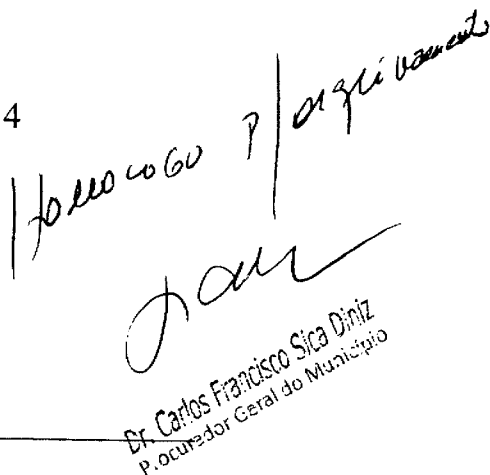 4
Homologo P/ arquivamento
Dr. Carlos Francisco Sica Diniz
Procurador Geral do Município